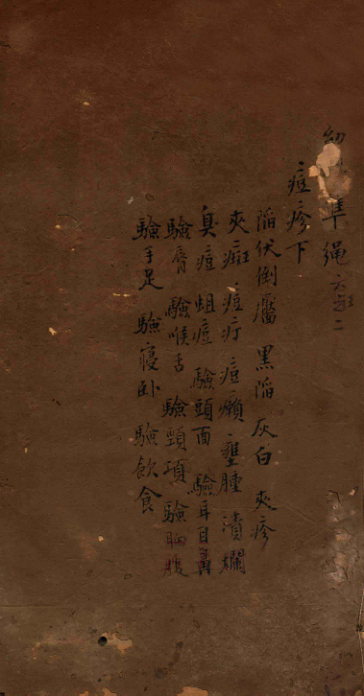 幼 準繩 六 二
痘疹下
陷伏倒靨 黑陷 灰白 夾疹
夾癍 痘疔 痘癩 壅腫 潰爛
臭痘 蛆痘 驗頭面 驗耳目鼻
驗脣 驗喉舌 驗頸項 驗胸腹
驗手足 驗寢卧 驗飲食